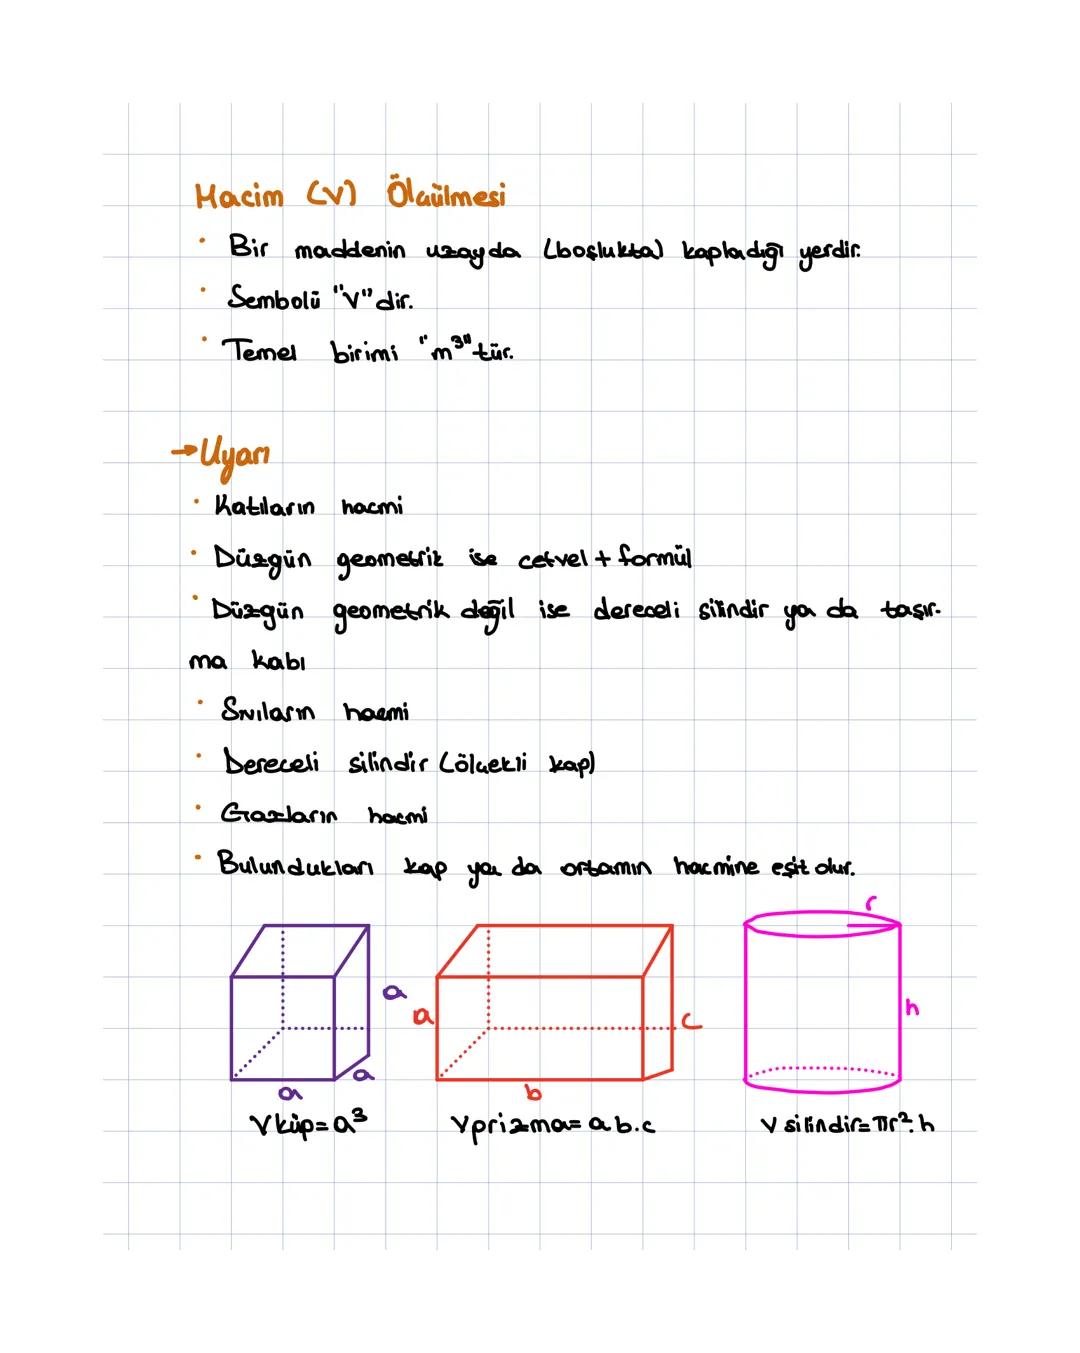 Hacim (V) Ölçülmesi
• Bir maddenin uzayda (boşlukta) kapladığı yerdir.
• Sembolü "V" dir.
• Temel birimi "m³" tür.
→ Uyarı
• Katıların hacmi
• Düzgün geometrik ise cetvel + formül
• Düzgün geometrik değil ise dereceli silindir ya da taşır-
ma kabı
• Sıvıların hacmi
• Dereceli silindir (ölçekli kap)
• Gazların hacmi
• Bulundukları kap ya da ortamın hacmine eşit olur.
r
a
a
c
h
a
a
b
V küp = a³
V prizma = a b.c
V silindir = πr².h